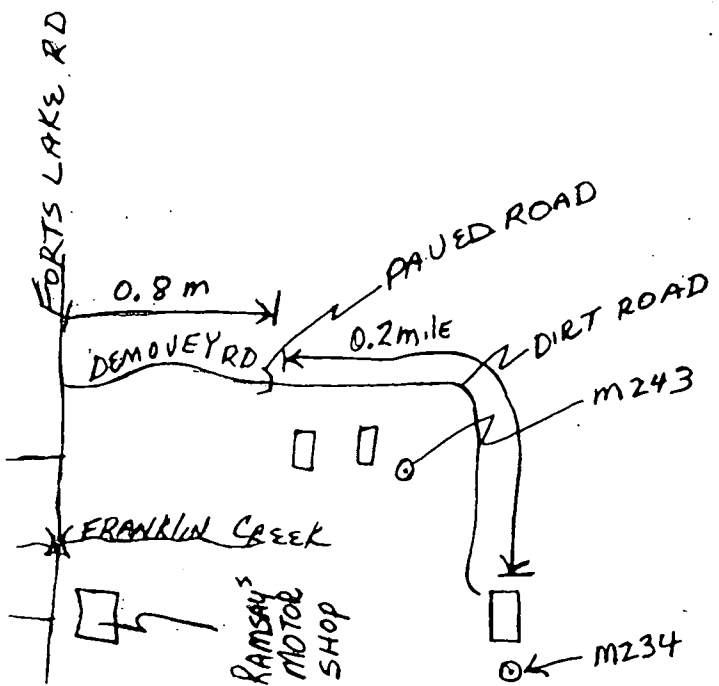 FORTS LAKE RD
0.8 m
PAVED ROAD
DEMOVEY RD
0.2 mile
DIRT ROAD
m243
FRANKLIN CREEK
RAMSAY'S
MOTOR
SHOP
m234